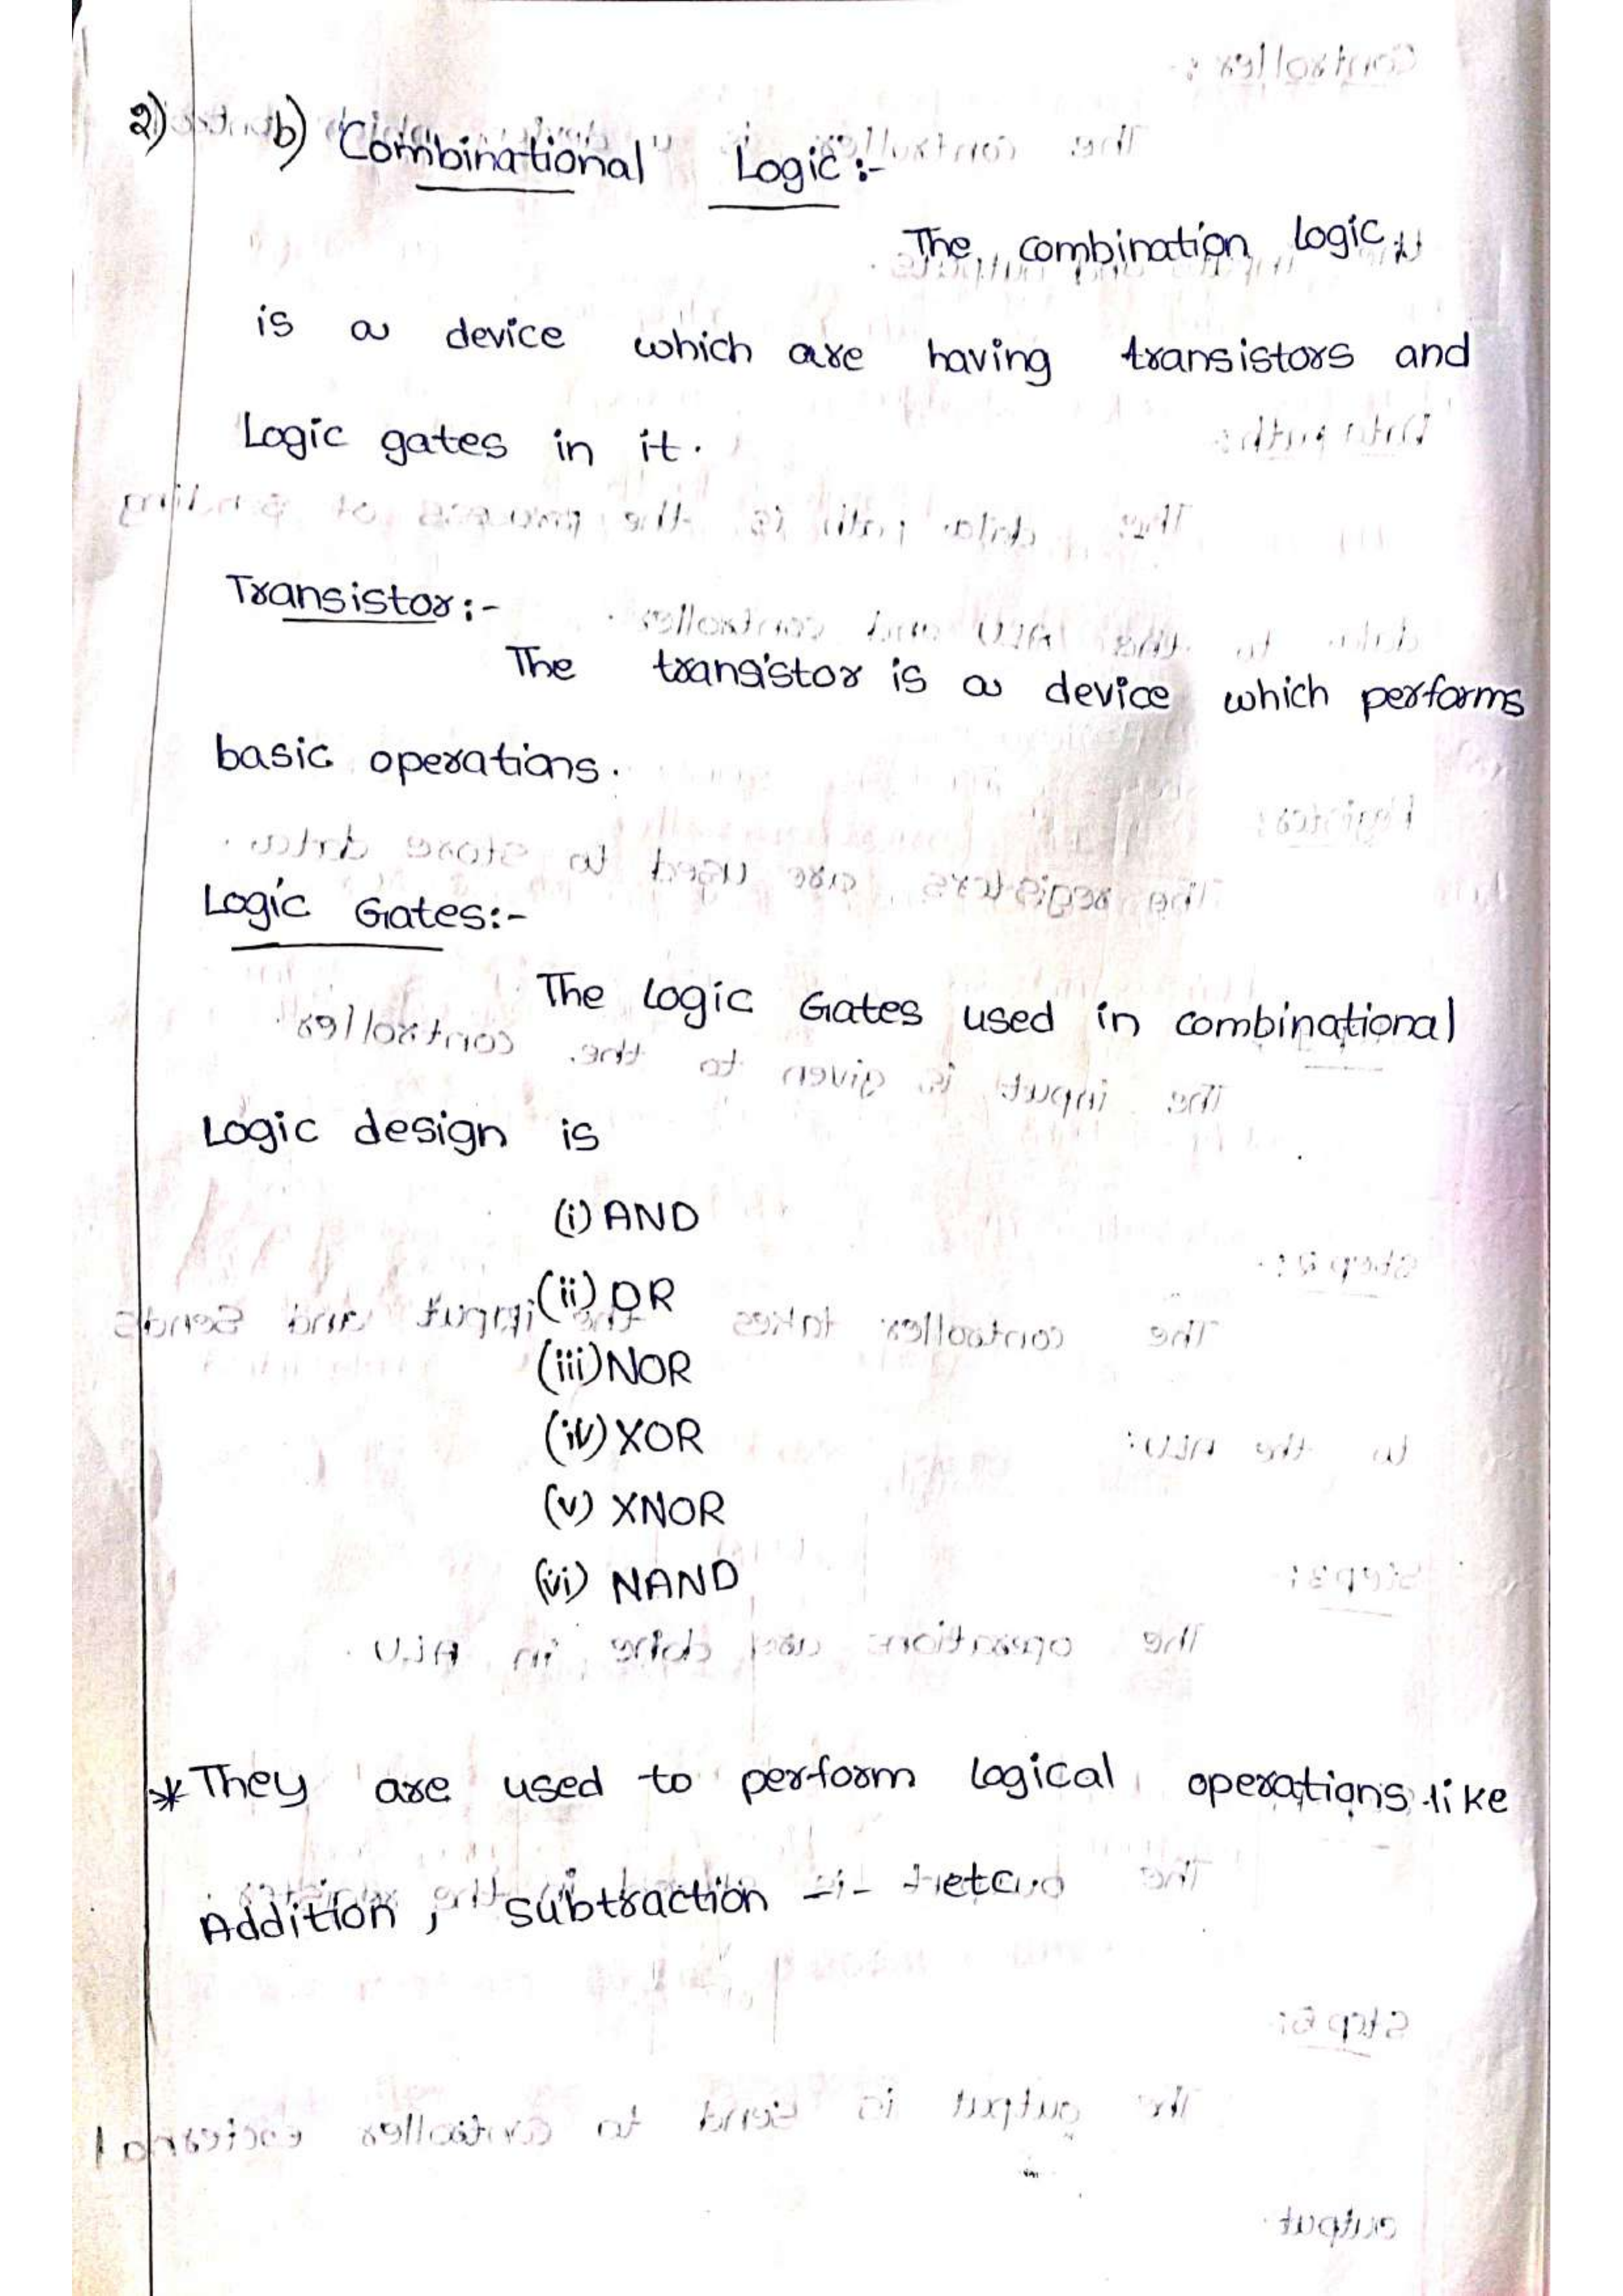 2) b) Combinational Logic:-
The combination logic
is a device which are having transistors and
Logic gates in it.
Transistor:-
The transistor is a device which performs
basic operations.
Logic Gates:-
The Logic Gates used in combinational
Logic design is
(i) AND
(ii) OR
(iii) NOR
(iv) XOR
(v) XNOR
(vi) NAND
* They are used to perform logical operations like
Addition, subtraction -- etc